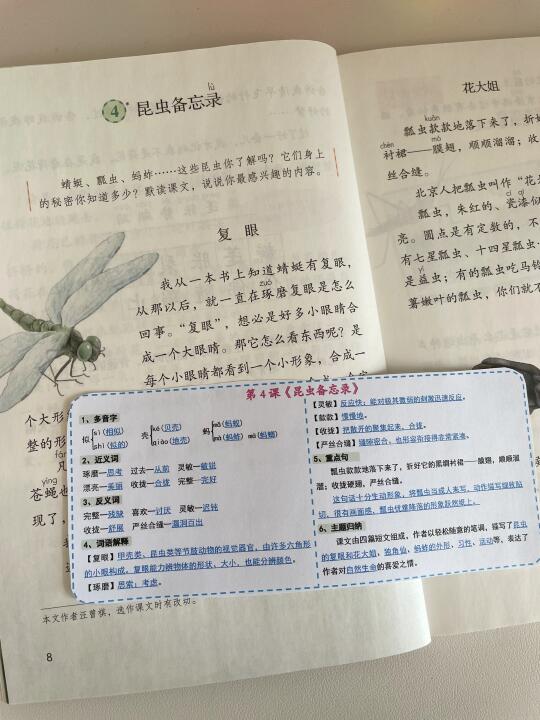 lù
4* 昆虫备忘录
蜻蜓、瓢虫、蚂蚱……这些昆虫你了解吗？它们身上
的秘密你知道多少？默读课文，说说你最感兴趣的内容。
复眼
我从一本书上知道蜻蜓有复眼，
zuó
从那以后，就一直在琢磨复眼是怎么
回事。“复眼”，想必是好多小眼睛合
成一个大眼睛。那它怎么看东西呢？是
每个小眼睛都看到一个小形象，合成一
个大形
整的形
凡
yíng
苍蝇也
现了，
本文作者汪曾祺，选作课文时有改动。
8
花大姐
kuǎn
瓢虫款款地落下来了，折好
chèn mó
衬裙——膜翅，顺顺溜溜；收
丝合缝。
北京人把瓢虫叫作“花大
cí qī
瓢虫，朱红的、瓷漆似
亮。圆点是有定数的，不
有七星瓢虫、十四星瓢虫
yì
是益虫；有的瓢虫吃马铃
薯嫩叶的瓢虫，你们就不
第4课《昆虫备忘录》
1、多音字
拟
壳 ké（贝壳）
qiào（地壳）
蚂 mǎ（蚂蚁）
mà（蚂蚱） mā（蚂螂）
2、近义词
琢磨—思考 过去—从前 灵敏—敏锐
漂亮—美丽 收拢—合拢 完整—完好
3、反义词
完整—残缺 喜欢—讨厌 灵敏—迟钝
收拢—舒展 严丝合缝—漏洞百出
4、词语解释
【复眼】甲壳类、昆虫类等节肢动物的视觉器官，由许多六角形
的小眼构成。复眼能分辨物体的形状、大小，也能分辨颜色。
【琢磨】思索；考虑。
【灵敏】反应快；能对极其微弱的刺激迅速反应。
【款款】慢慢地。
【收拢】把散开的聚集起来，合拢。
【严丝合缝】缝隙密合，也形容衔接得非常紧凑。
5、重点句
瓢虫款款地落下来了，折好它的黑绸衬裙——膜翅，顺顺溜
溜；收拢硬翅，严丝合缝。
这句话十分生动形象，将瓢虫当成人来写，动作描写细致贴
切，很有画面感，瓢虫优雅降落的形象跃然纸上。
6、主题归纳
课文由四篇短文组成，作者以轻松随意的笔调，描写了昆虫
的复眼和花大姐、独角仙、蚂蚱的外形、习性、活动等，表达了
作者对自然生命的喜爱之情。